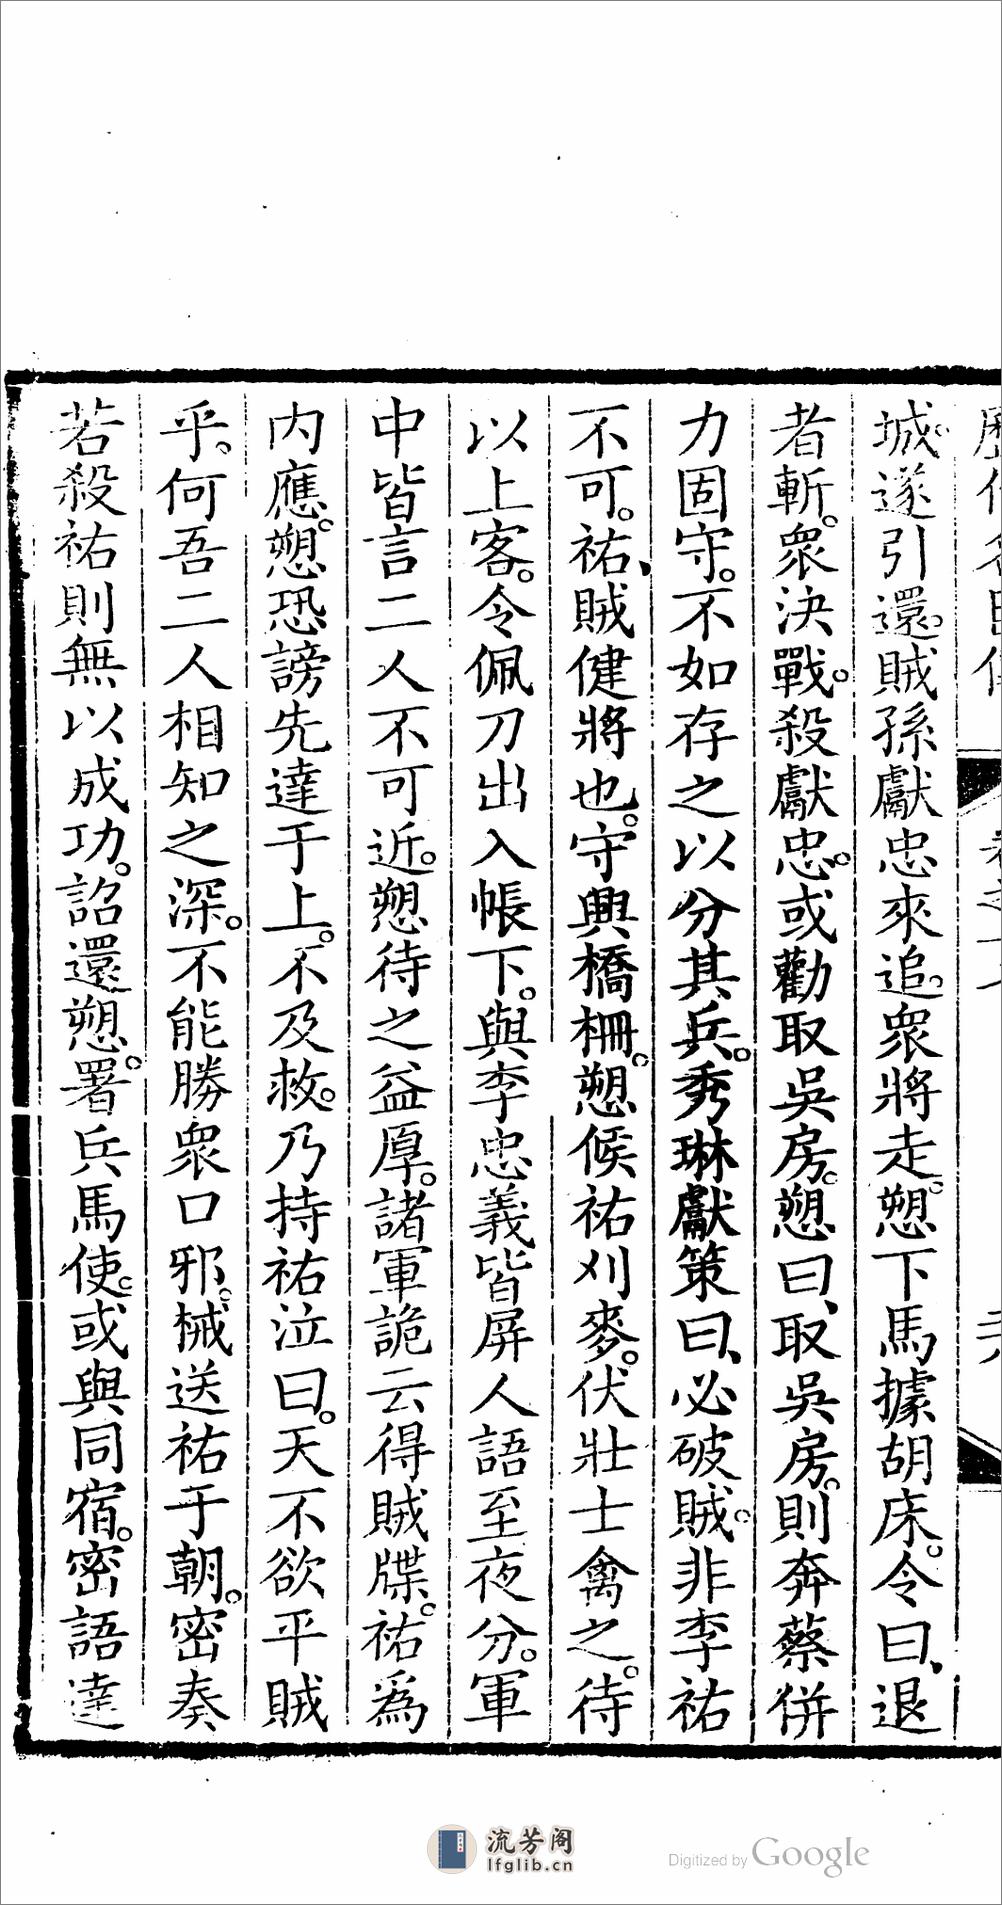 城。遂引還。賊孫獻忠來追。眾將走。愬下馬據胡床。令曰、退
者斬。眾決戰。殺獻忠。或勸取吳房。愬曰、取吳房。則奔蔡併
力固守。不如存之以分其兵。秀琳獻策曰、必破賊。非李祐
不可。祐、賊健將也。守興橋柵。愬候祐刈麥。伏壯士禽之。待
以上客。令佩刀出入帳下。與李忠義皆屏人語至夜分。軍
中皆言二人不可近。愬待之益厚。諸軍詭云得賊牒。祐為
內應。愬恐謗先達于上。不及救。乃持祐泣曰。天不欲平賊
乎。何吾二人相知之深。不能勝眾口邪。械送祐于朝。密奏
若殺祐則無以成功。詔還愬。署兵馬使。或與同宿。密語達
流芳阁
lfglib.cn
Digitized by Google